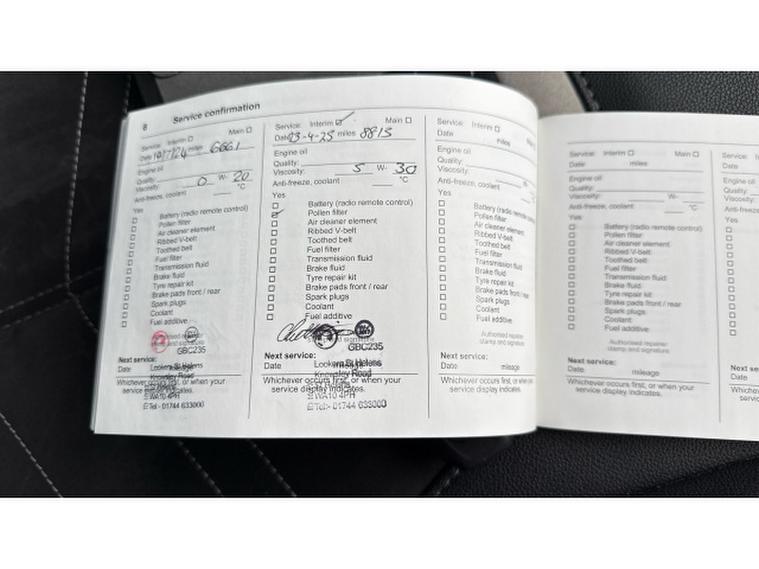 8 Service confirmation
Service: Interim Main
Date 10/7/24 miles 6661
Engine oil
Quality:
Viscosity: 0 W- 20
Anti-freeze, coolant °C
Yes
Battery (radio remote control)
Pollen filter
Air cleaner element
Ribbed V-belt
Toothed belt
Fuel filter
Transmission fluid
Brake fluid
Tyre repair kit
Brake pads front / rear
Spark plugs
Coolant
Fuel additive
GBC235
Next service:
Date
Lookers St Helens
Knowsley Road
WA10 4PH
Tel:- 01744 633000
Whichever occurs first, or when your
service display indicates.
Service: Interim Main
Date 23-4-25 miles 8815
Engine oil
Quality:
Viscosity: 5 W- 30
Anti-freeze, coolant °C
Yes
Battery (radio remote control)
Pollen filter
Air cleaner element
Ribbed V-belt
Toothed belt
Fuel filter
Transmission fluid
Brake fluid
Tyre repair kit
Brake pads front / rear
Spark plugs
Coolant
Fuel additive
GBC235
Next service:
Date
Lookers St Helens
Knowsley Road
WA10 4PH
Tel:- 01744 633000
Whichever occurs first, or when your
service display indicates.
Service: Interim
Date miles
Engine oil
Quality:
Viscosity:
Anti-freeze, coolant
Yes
Battery (radio remote
Pollen filter
Air cleaner element
Ribbed V-belt
Toothed belt
Fuel filter
Transmission fluid
Brake fluid
Tyre repair kit
Brake pads front / rear
Spark plugs
Coolant
Fuel additive
Authorised repairer
stamp and signature
Next service:
Date mileage
Whichever occurs first, or when your
service display indicates.
Service: Interim Main
Date miles
Engine oil
Quality:
Viscosity: W-
Anti-freeze, coolant °C
Yes
Battery (radio remote control)
Pollen filter
Air cleaner element
Ribbed V-belt
Toothed belt
Fuel filter
Transmission fluid
Brake fluid
Tyre repair kit
Brake pads front / rear
Spark plugs
Coolant
Fuel additive
Authorised repairer
stamp and signature
Next service:
Date mileage
Whichever occurs first, or when your
service display indicates.
Service:
Date
Engine oil
Quality:
Viscosity:
Anti-freeze
Yes
Date